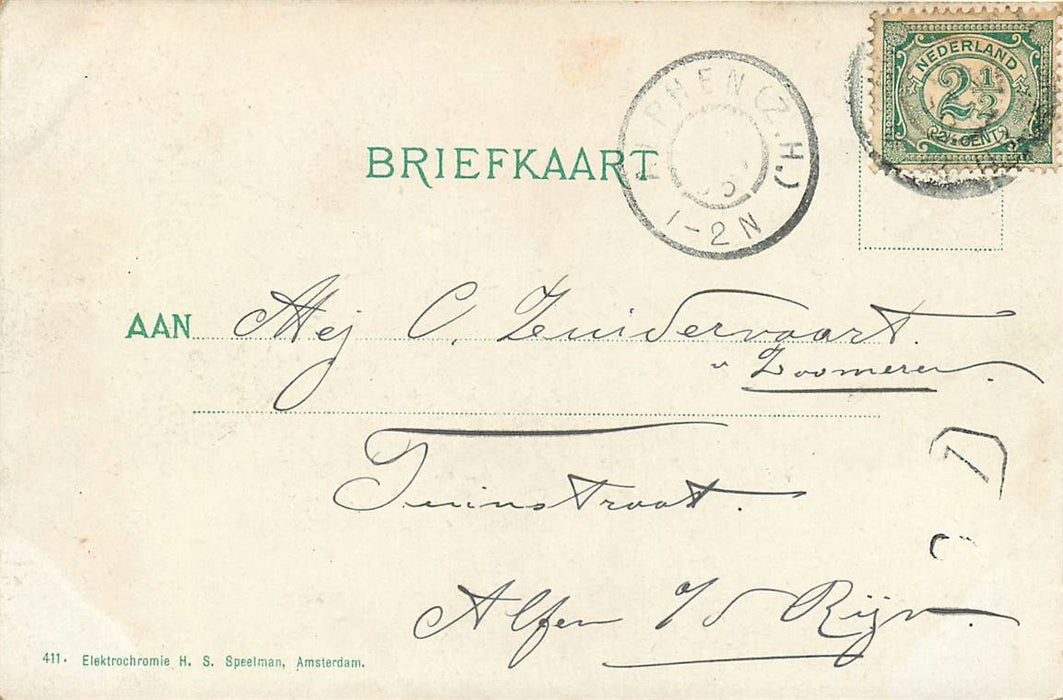 NEDERLAND
2½
2½ CENT
ALPHEN (Z.H.)
1-2N
BRIEFKAART
AAN Mej C. Zuidervaart.
v Zoomeren.
Tuinstraat.
Alfen a/d Rijn.
411. Elektrochromie H. S. Speelman, Amsterdam.